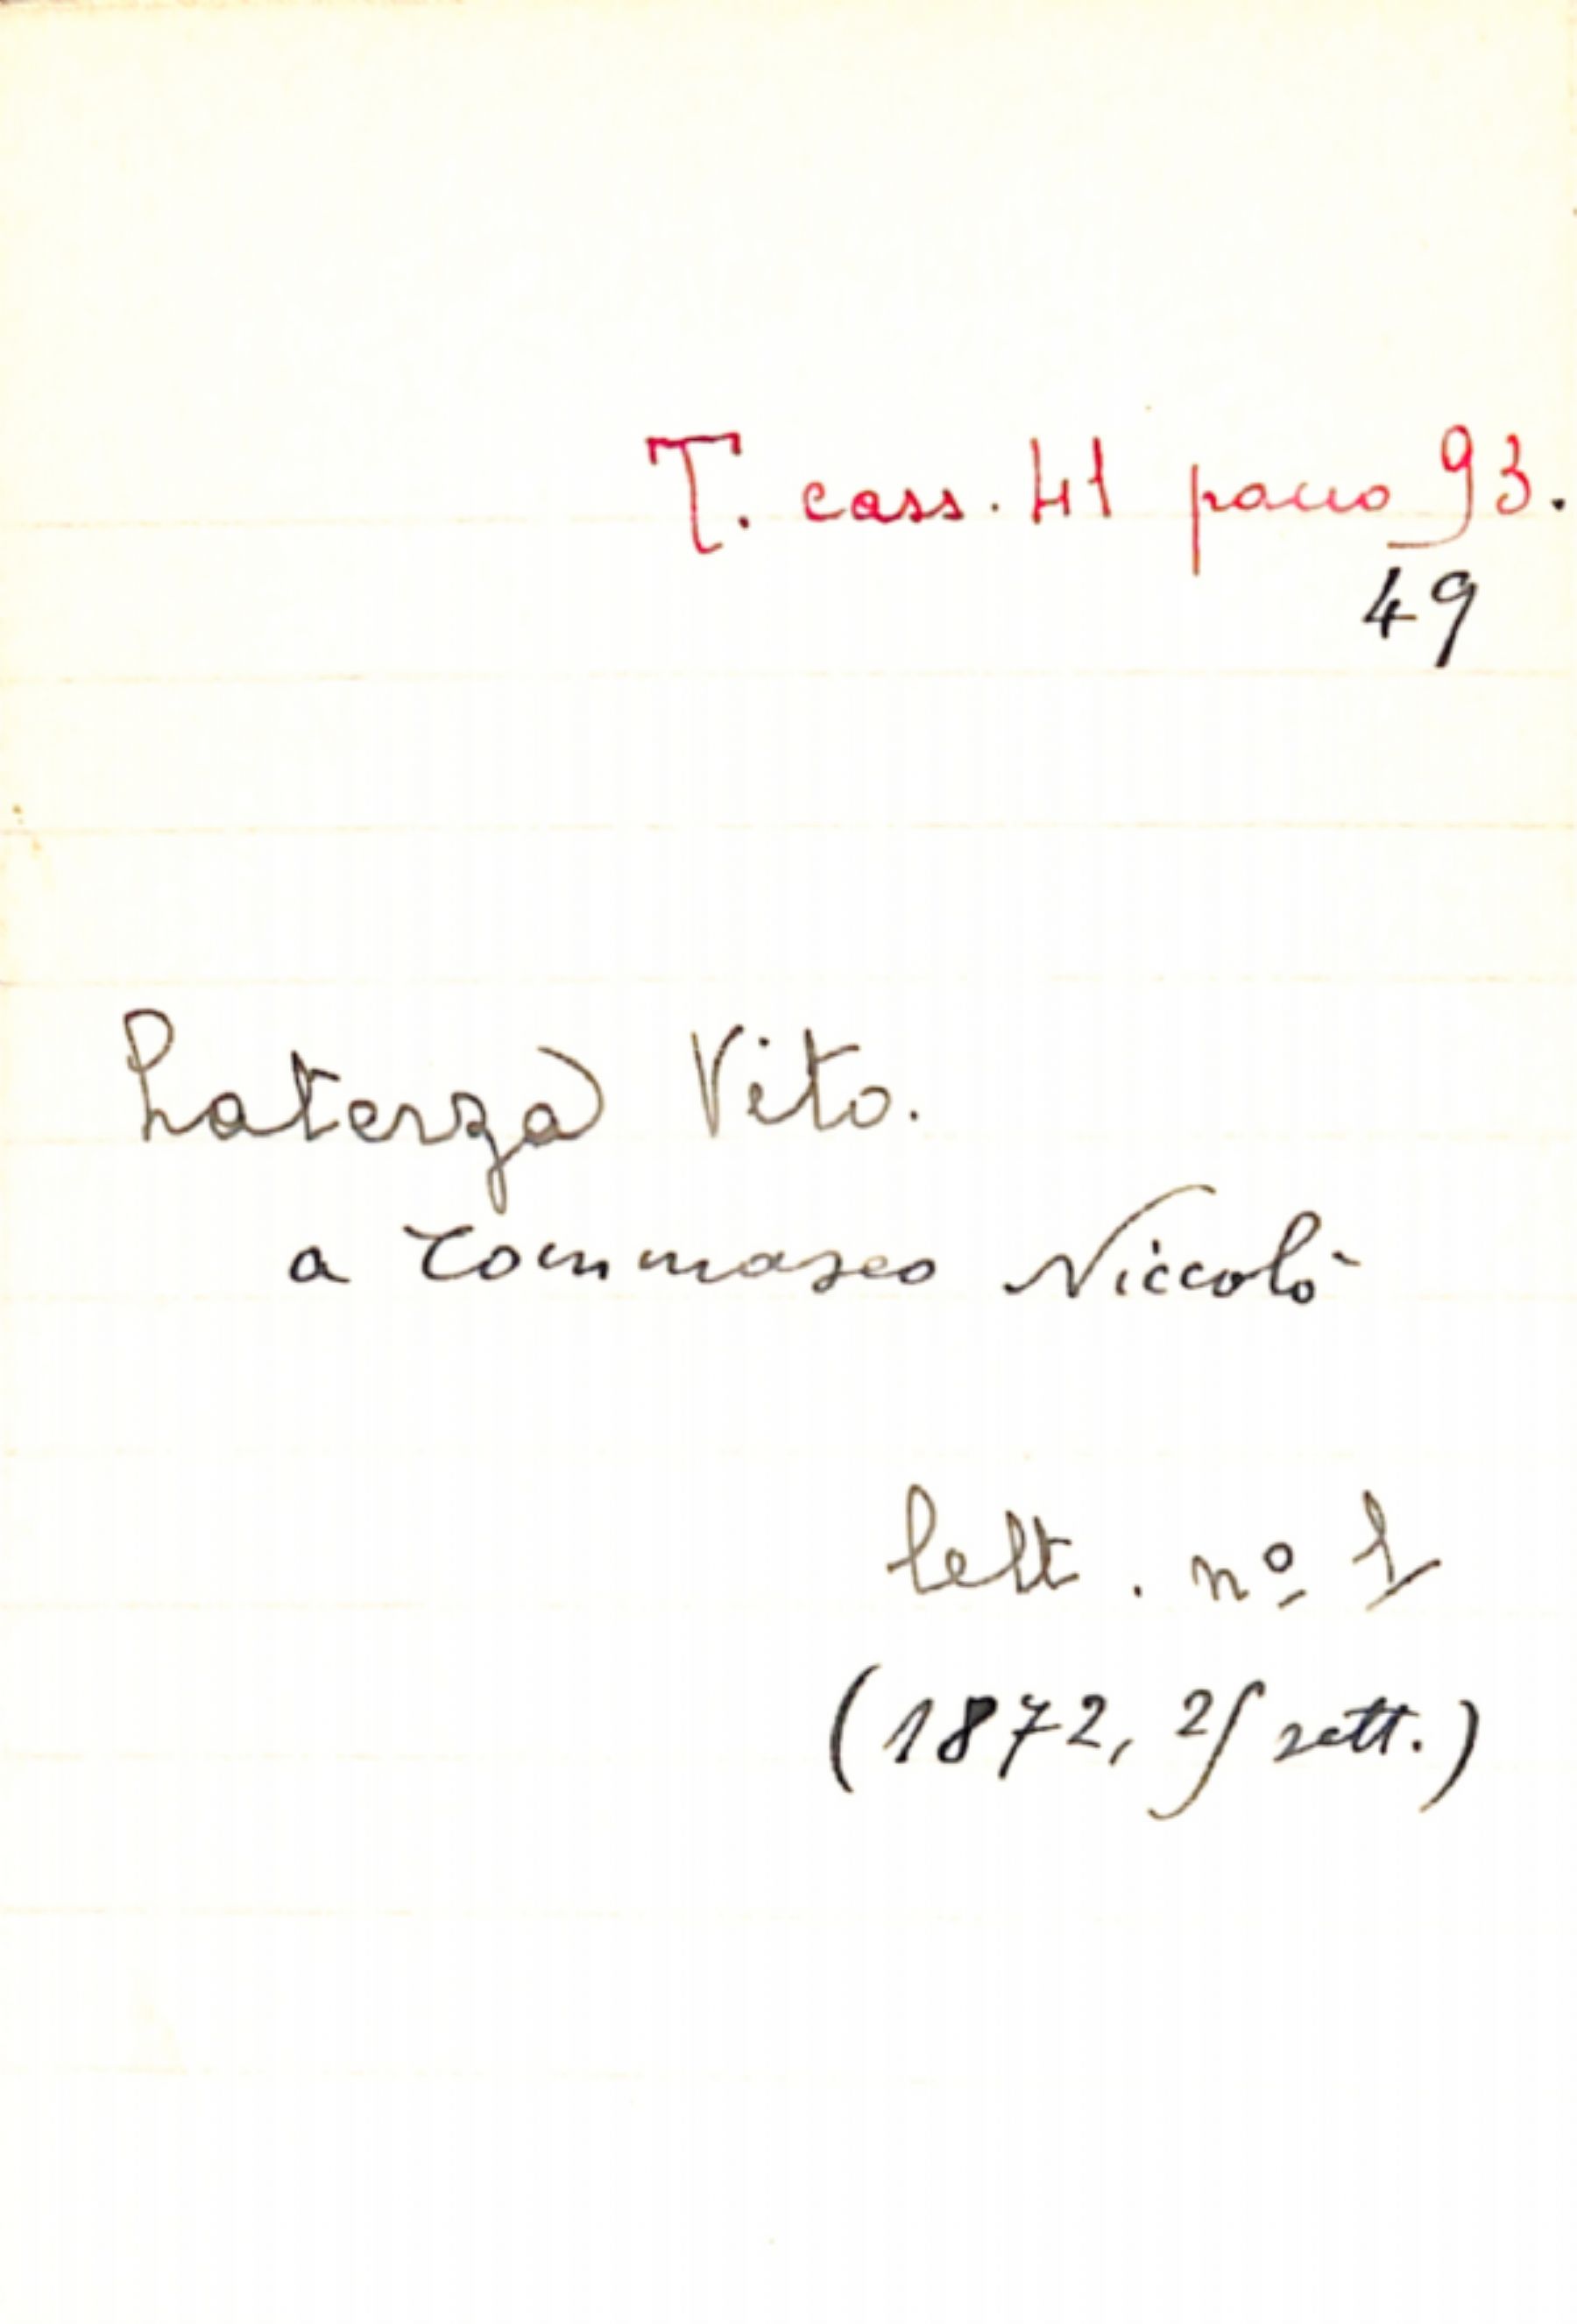 T. cass. 41 pacco 93.
49
Laterza Vito.
a Tommaseo Niccolò
lett. nº 1
(1872, 25 sett.)